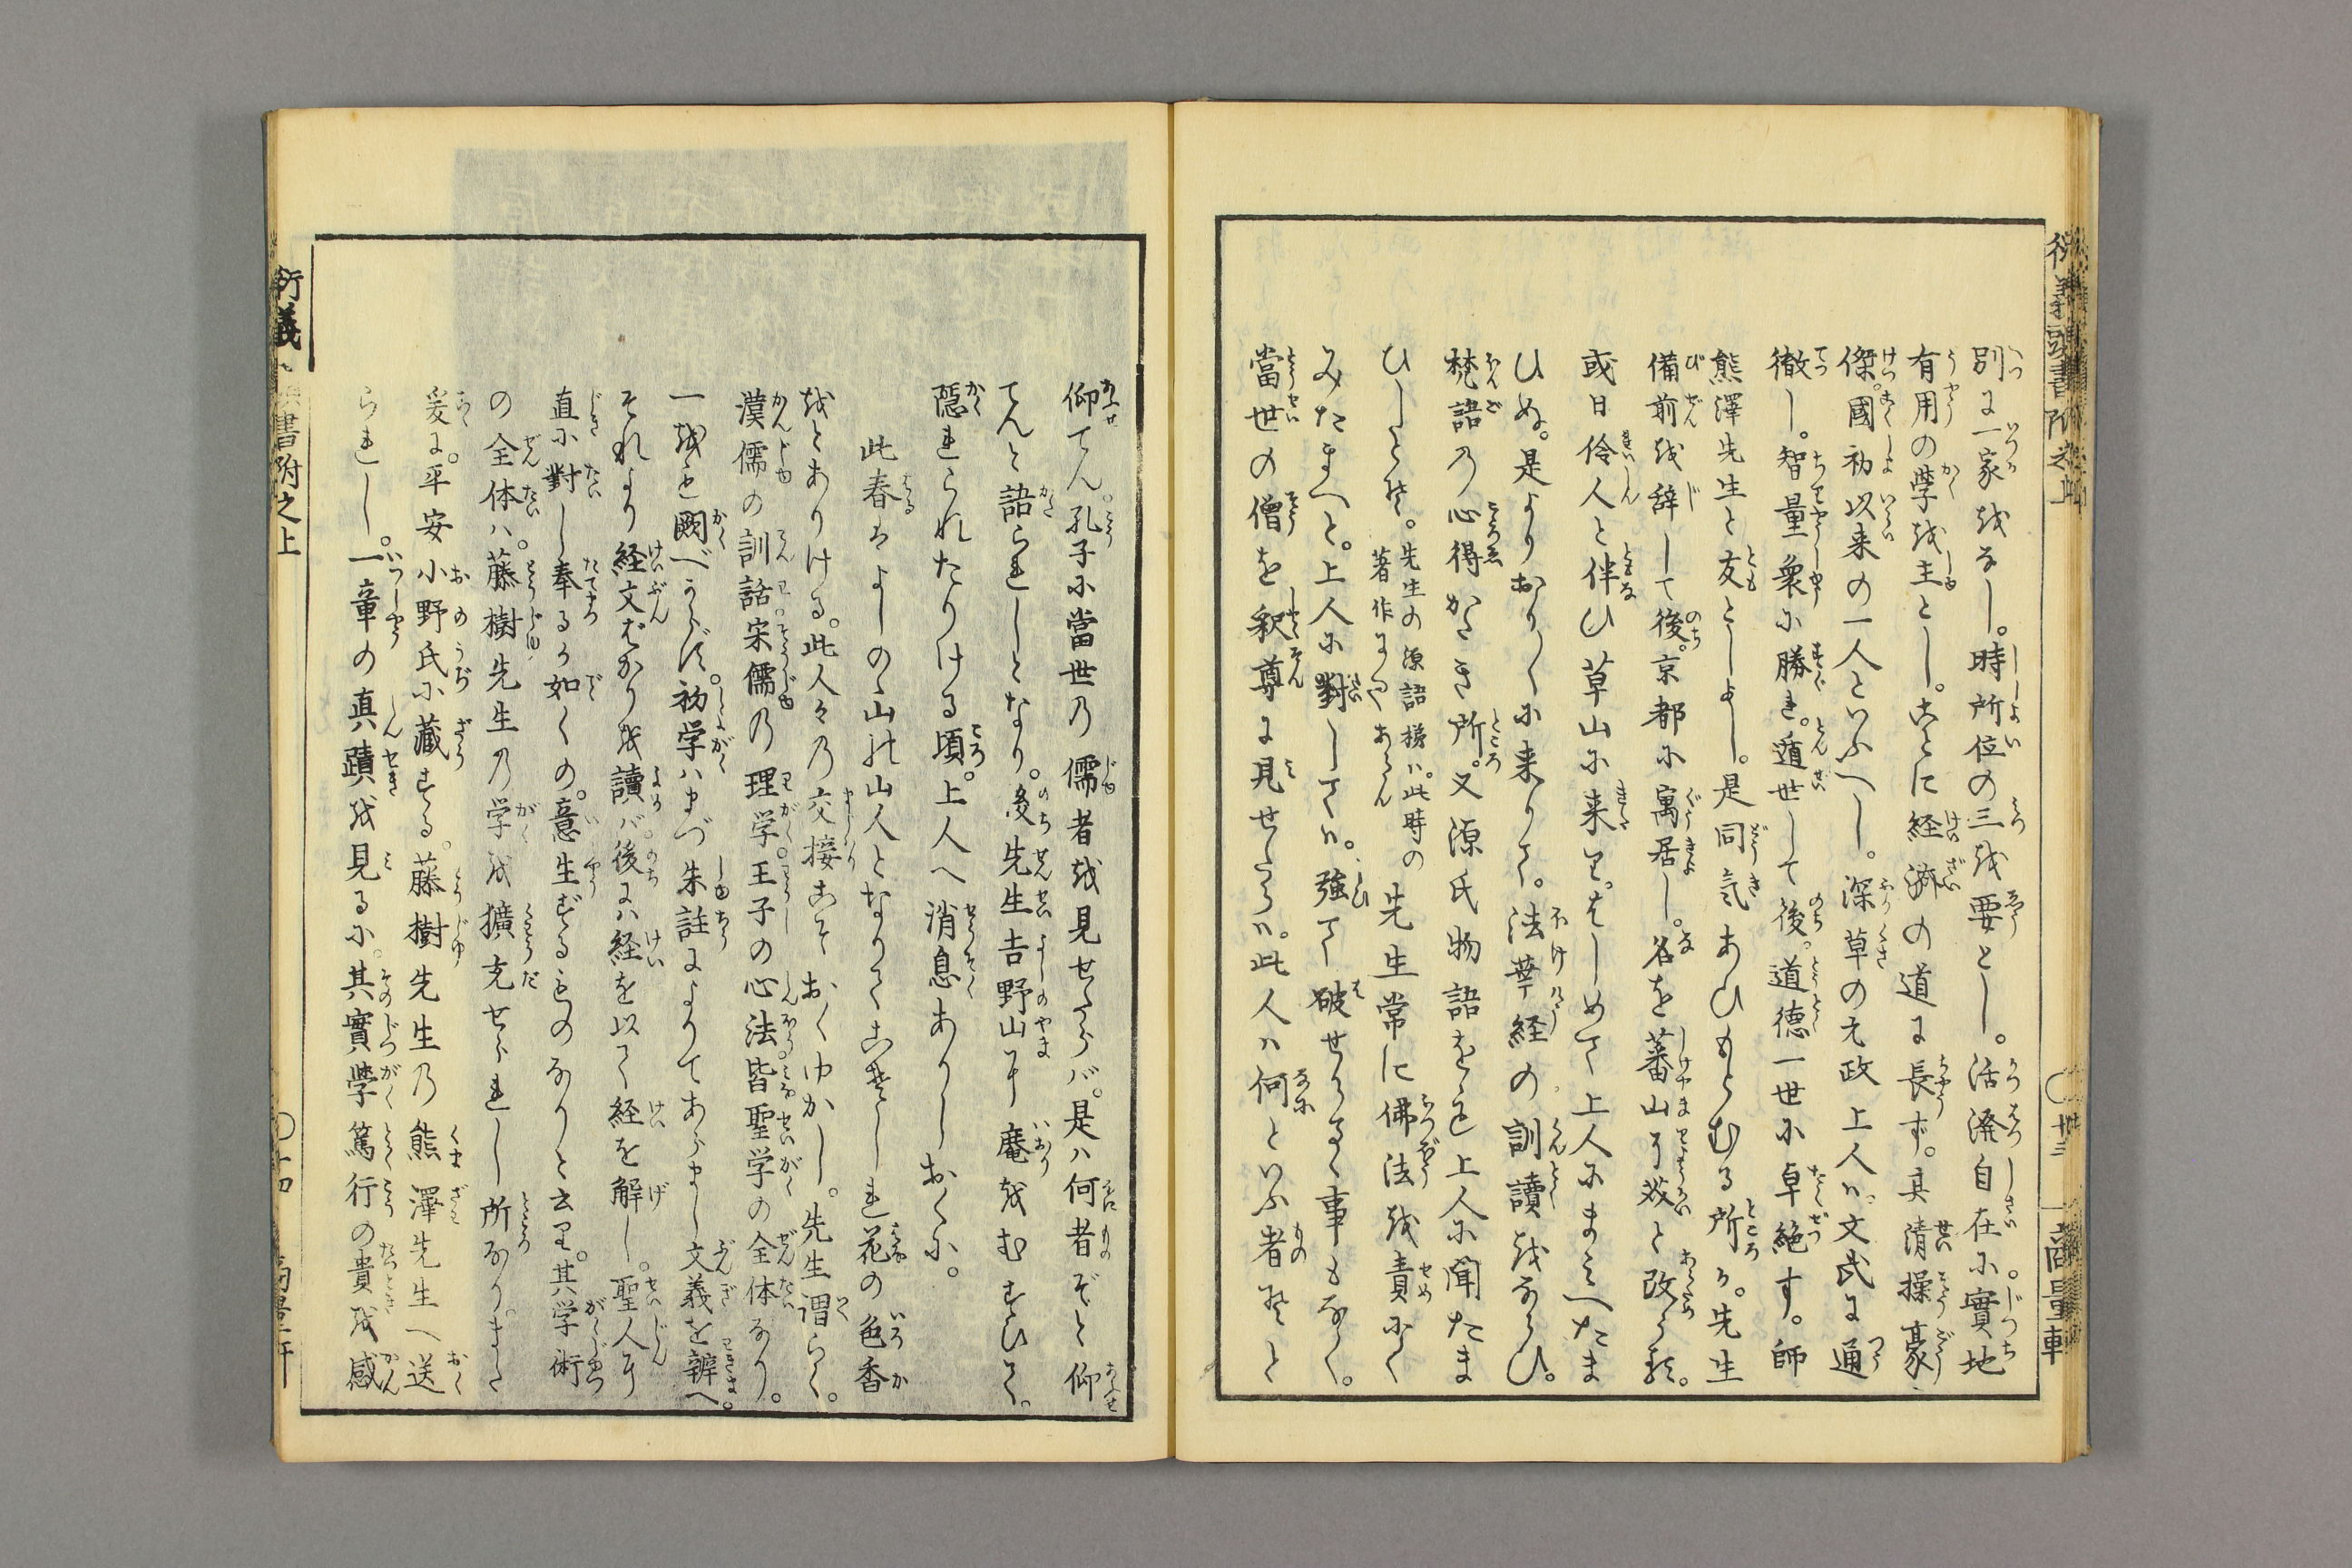 別に一家をなし。時所位の三を要とし。活溌自在に實地
有用の學を主とし。ことに経濟の道に長ず。其清操豪
傑。國初以来の一人といふへし。深草の元政上人は。文武に通
徹し。智量衆に勝れ。遁世して後。道徳一世に卓絶す。師
熊澤先生と友としよし。是同気あひもとむる所か。先生
備前を辞して後。京都に寓居し。名を蕃山了介と改らる。
或日伶人と伴ひ草山に来り。はしめて上人にまみへたま
ひぬ。是よりおり〱に来りて。法華経の訓讀をならひ。
梵語の心得かたき所。又源氏物語をも上人に聞たま
ひしとぞ。先生の源語梯は。此時の著作にやあらん 先生常に佛法を責にく
みたまへと。上人に對しては。強て破せらるゝ事もなく。
當世の僧を釈尊に見せたらは。此人は何といふ者ぞと
仰てん。孔子に當世の儒者を見せたらば。是は何者ぞと仰
てんと語られしとなり。後先生吉野山に庵をむすひて。
隠れられたりける頃。上人へ消息ありしおくに。
此春はよしのゝ山の山人となりてこそしれ花の色香
をとありける。此人々の交接こそおくゆかし。先生謂らく。
漢儒の訓詁宋儒の理学。王子の心法皆聖学の全体なり。
一をも闕べからず。初学はまづ朱註によりてあらまし文義を辨へ。
それより経文ばかりを讀ば。後には経を以て経を解し。聖人に
直に對し奉るか如くの。意生ずるものなりと云り。其学術
の全体は。藤樹先生の学を擴充せられし所なり。また
爰に。平安小野氏に藏する。藤樹先生の熊澤先生へ送
られし。一章の真蹟を見るに。其實學篤行の貴を感
衍義
書附之上
〇
十四